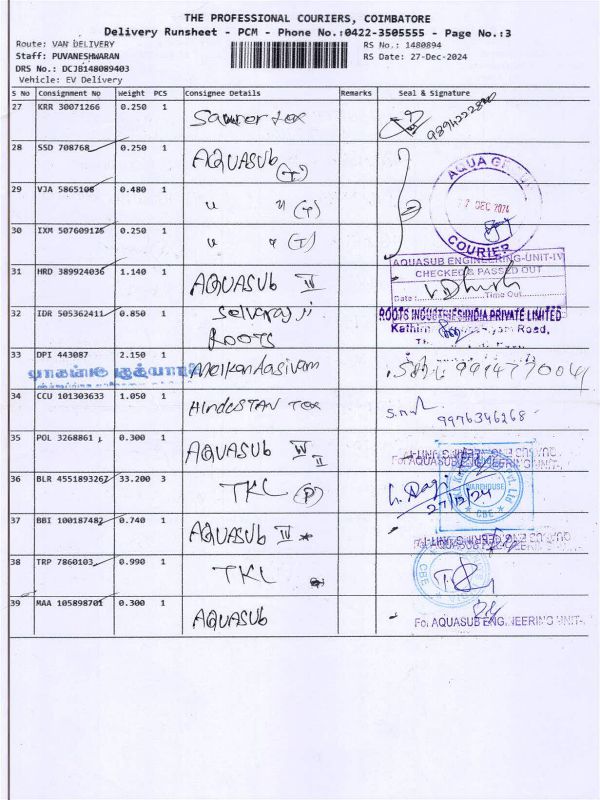 THE PROFESSIONAL COURIERS, COIMBATORE
Delivery Runsheet - PCM - Phone No.:0422-3505555 - Page No.:3
Route: VAN DELIVERY
Staff: PUVANESHWARAN
DRS No.: DCJB148089403
Vehicle: EV Delivery
RS No.: 1480894
RS Date: 27-Dec-2024
S No Consignment No Weight PCS Consignee Details Remarks Seal & Signature
27 KRR 30071266 0.250 1
9894222840
28 SSD 708768 0.250 1 AQUASUB (T)
29 VJA 5865108 0.480 1 " " (T)
AQUA
DEC 2024
COURIER
30 IXM 507609175 0.250 1 " " (T)
31 HRD 389924036 1.140 1 AQUASUB IV
AQUASUB ENGINEERING-UNIT-IV
CHECKED & PASSED OUT
Date: Time Out
32 IDR 505362411 0.850 1 Selvaraj ji
ROOTS
ROOTS INDUSTRIES INDIA PRIVATE LIMITED
Road,
33 DPI 443087 2.150 1 Meikandasivam
34 CCU 101303633 1.050 1 HINDUSTAN TEX
9976346268
35 POL 3268861 0.300 1 AQUASUB IV II
For AQUASUB ENGINEERING UNIT-
36 BLR 4551893267 33.200 3 TKL (P)
27/12/24
WAREHOUSE
CBE
37 BBI 100187482 0.740 1 AQUASUB IV *
For AQUASUB ENGINEERING UNIT-
38 TRP 7860103 0.990 1 TKL
CBE
39 MAA 105898701 0.300 1 AQUASUB
For AQUASUB ENGINEERING UNIT-